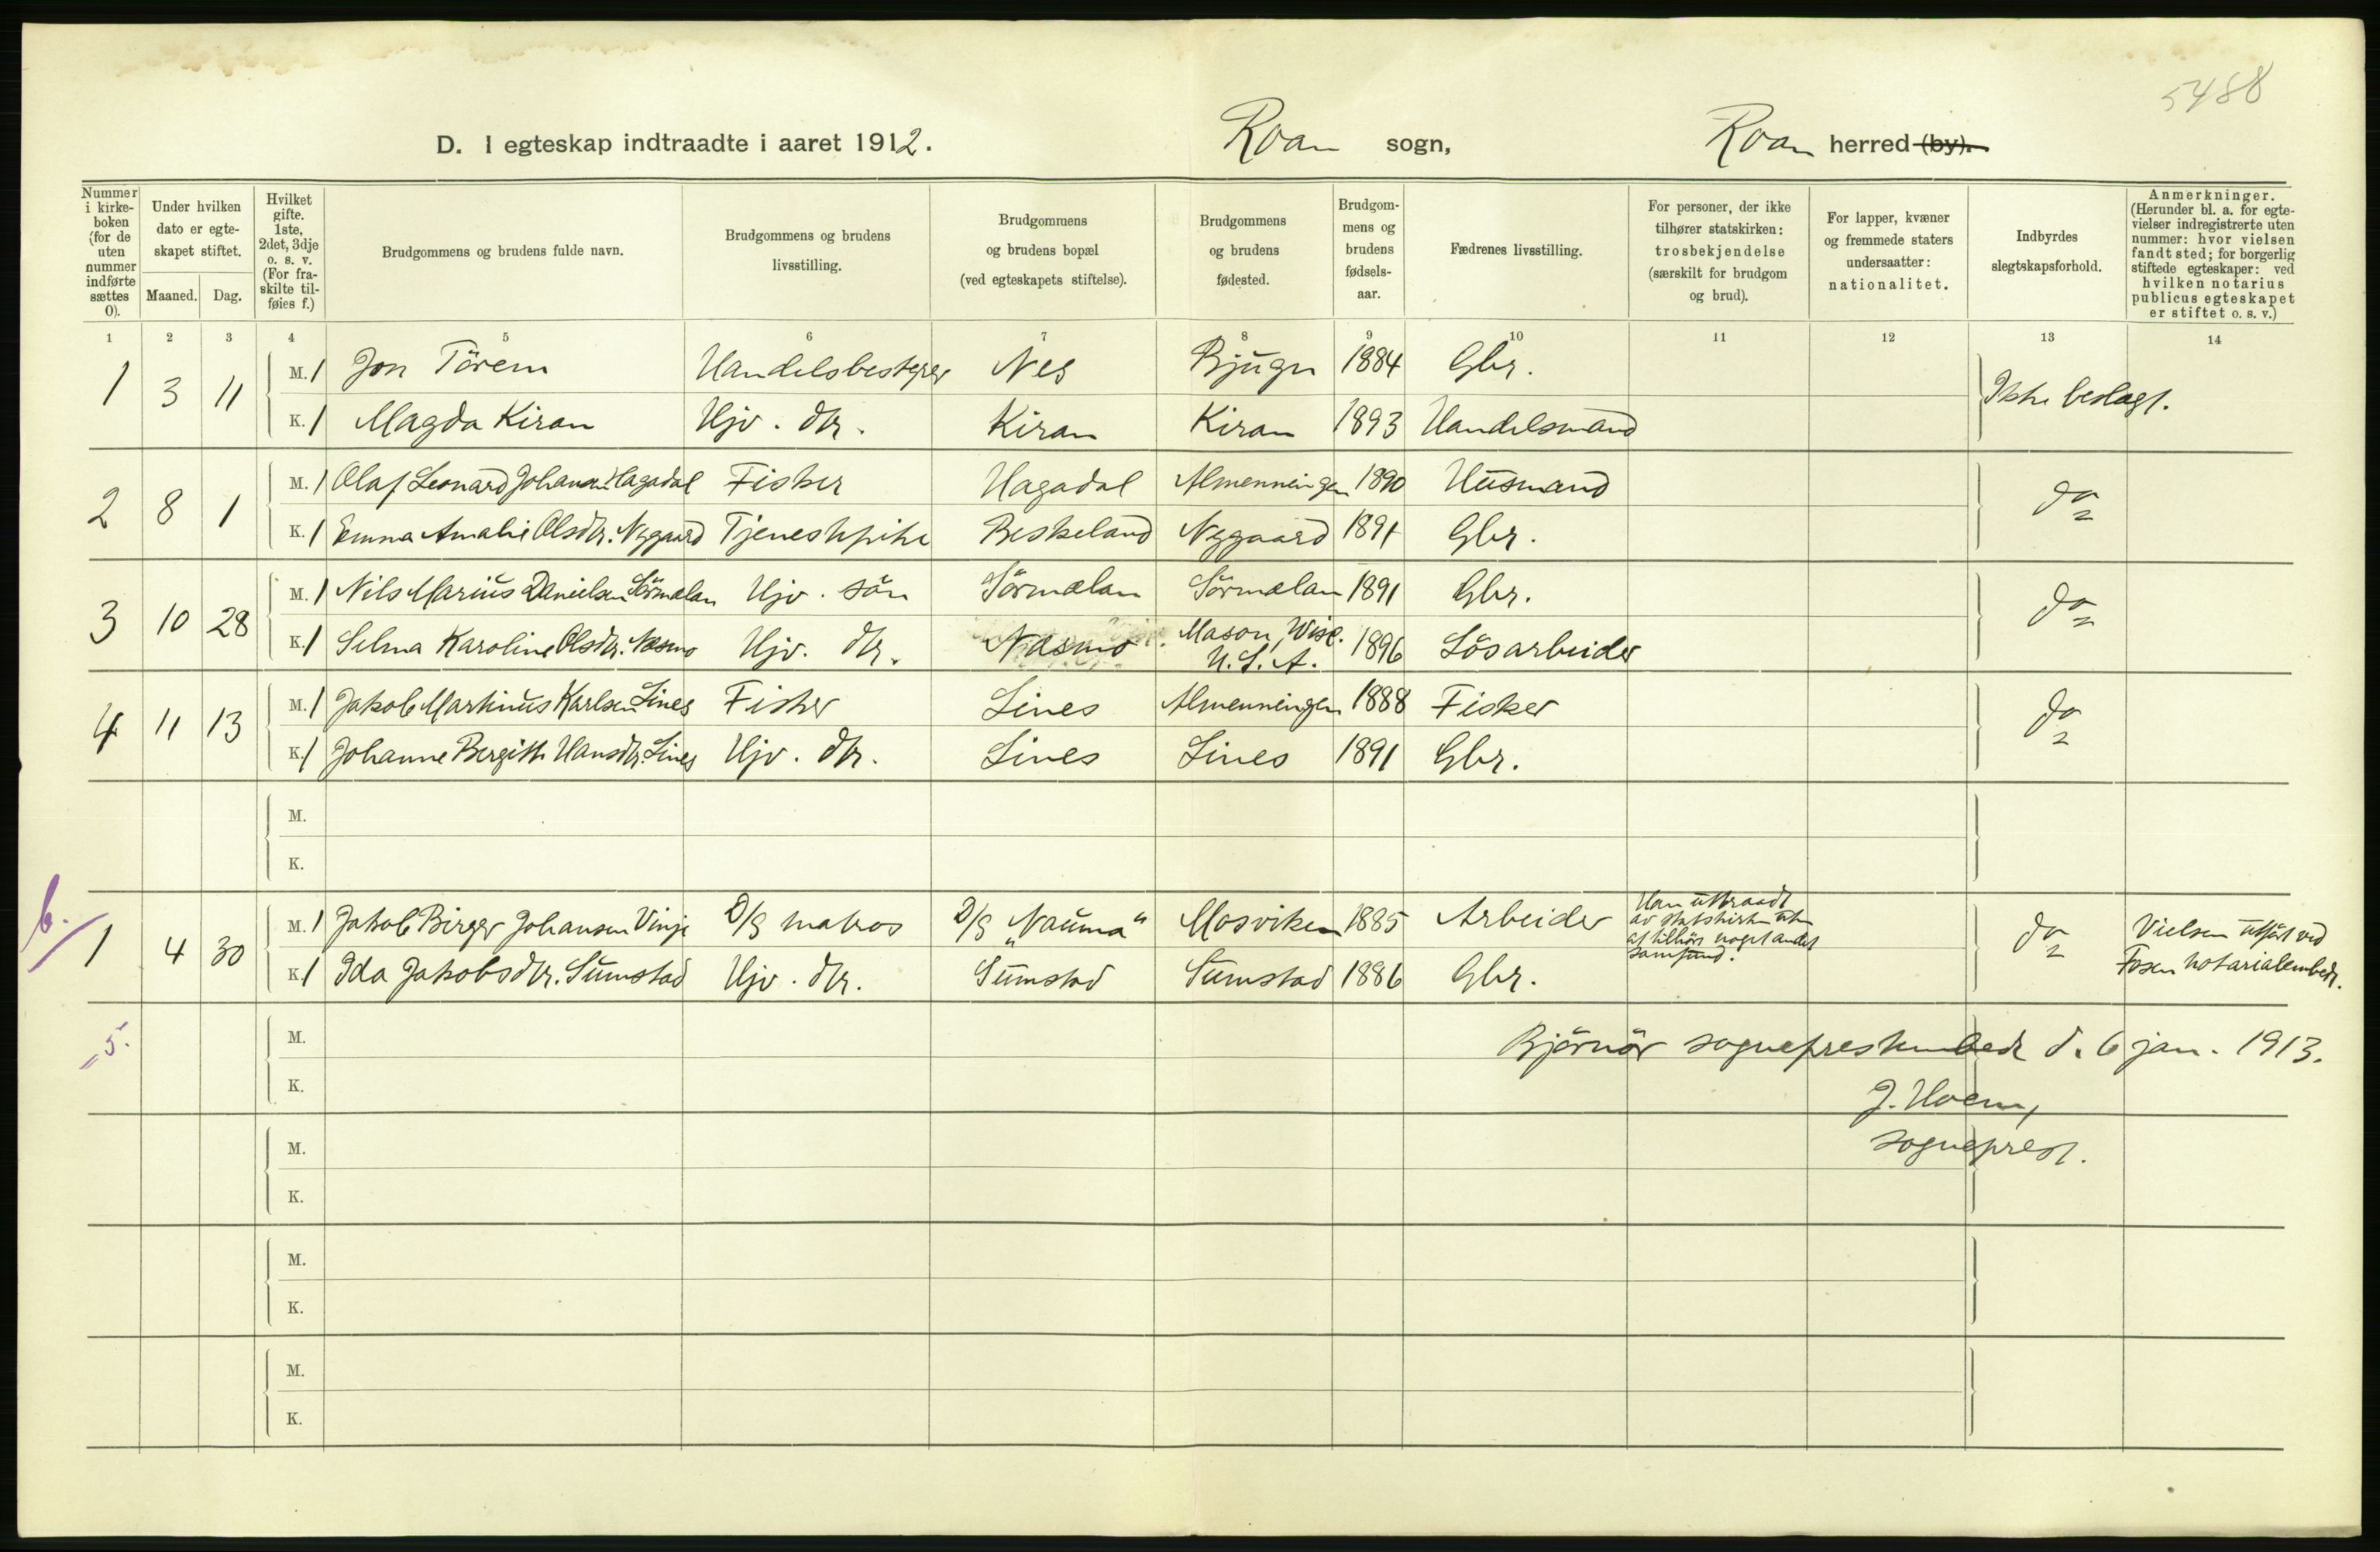 5488
D. I egteskap indtraadte i aaret 1912. Roan sogn, Roan herred (by).
Nummer i kirke-boken (for de uten nummer indførte sættes 0).
Under hvilken dato er egte-skapet stiftet.
Maaned. Dag.
Hvilket gifte. 1ste, 2det, 3dje o. s. v. (For fra-skilte til-føies f.)
Brudgommens og brudens fulde navn.
Brudgommens og brudens livsstilling.
Brudgommens og brudens bopæl (ved egteskapets stiftelse).
Brudgommens og brudens fødested.
Brudgom-mens og brudens fødsels-aar.
Fædrenes livsstilling.
For personer, der ikke tilhører statskirken: trosbekjendelse (særskilt for brudgom og brud).
For lapper, kvæner og fremmede staters undersaatter: nationalitet.
Indbyrdes slegtskapsforhold.
Anmerkninger. (Herunder bl. a. for egte-vielser indregistrerte uten nummer: hvor vielsen fandt sted; for borgerlig stiftede egteskaper: ved hvilken notarius publicus egteskapet er stiftet o. s. v.)
1 2 3 4 5 6 7 8 9 10 11 12 13 14
1 3 11 M. 1 Jon Tårem Handelsbestyrer Nes Bjugn 1884 Gbr. Ikke beslagt.
K. 1 Magda Kiran Hjv. dtr. Kiran Kiran 1893 Handelsmand
2 8 1 M. 1 Olaf Leonard Johansen Hagadal Fisker Hagadal Almenningen 1890 Husmand do
K. 1 Emma Amalie Olsdtr. Nygaard Tjenestpike Beskeland Nygaard 1891 Gbr.
3 10 28 M. 1 Nils Marius Danielsen Sörmælan Hjv. sön Sörmælan Sörmælan 1891 Gbr. do
K. 1 Selma Karoline Olsdtr. Næsmo Hjv. dtr. Næsmo Mason, Wisc. U.S.A. 1896 Lösarbeider
4 11 13 M. 1 Jakob Martinus Karlsen Lines Fisker Lines Almenningen 1888 Fisker do
K. 1 Johanne Bergitte Hansdtr. Lines Hjv. dtr. Lines Lines 1891 Gbr.
M.
K.
b.
1 4 30 M. 1 Jakob Birger Johansen Vinje D/S matros D/S „Nauma" Mosviken 1885 Arbeider Han uttraadt av statskirken uten at tilhöre noget andet samfund. do Vielsen utfört ved Fosen notarialembede.
K. 1 Ida Jakobsdtr. Sumstad Hjv. dtr. Sumstad Sumstad 1886 Gbr.
5.
M.
K.
Björnör sogneprestembede d. 6 jan. 1913.
J. Hoem,
sogneprest.
M.
K.
M.
K.
M.
K.